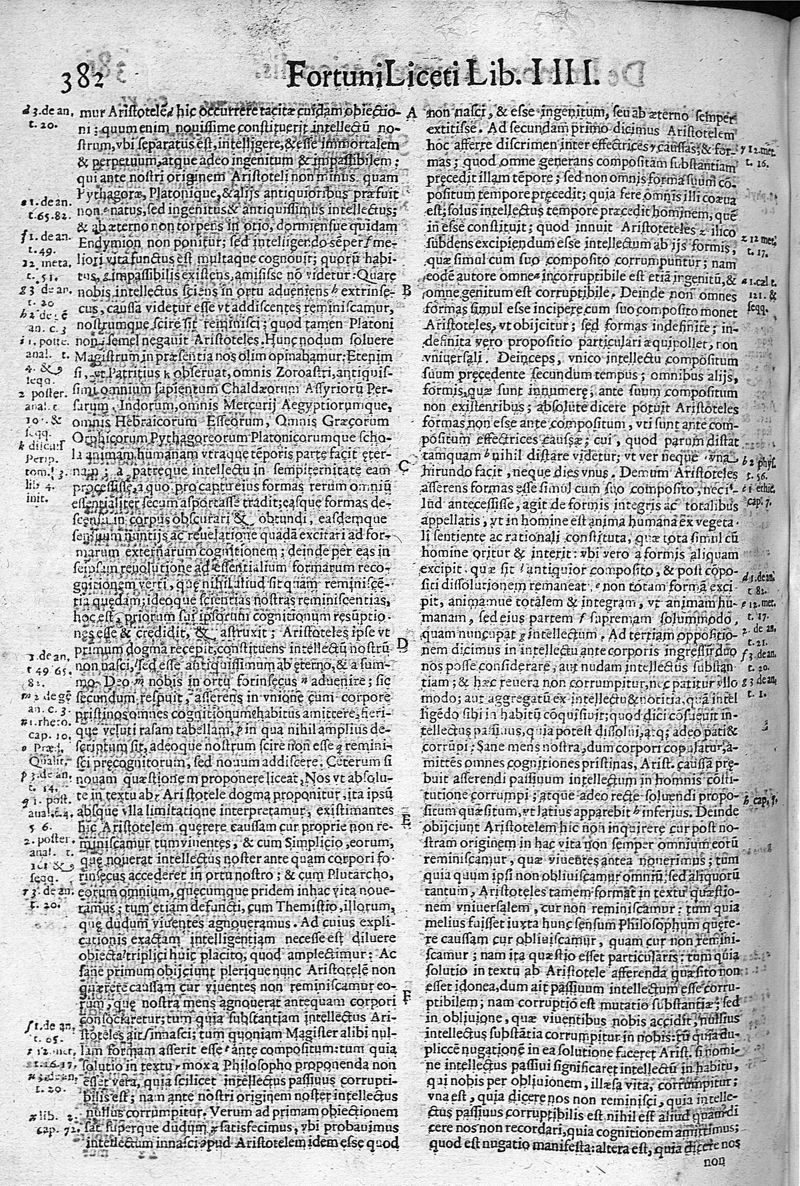 382
Fortuni Liceti Lib. IIII.
mur Aristotelē hic occurrere tacitæ cuidam obiectio-
ni: quum enim nouissime constituerit intellectū no-
strum, vbi separatus est, intelligere, & esse immortalem
& perpetuum, atque adeo ingenitum & impassibilem;
qui ante nostri originem Aristoteli non minus quam
Pythagoræ, Platonique, & alijs antiquioribus præfuit
non natus, sed ingenitus & antiquissimus intellectus;
& ab æterno non torpens in otio, dormiensue quidam
Endymion non ponitur; sed intelligendo sēper f me-
liori vita functus est multaque cognouit; quorū habi-
tus, g impassibilis existens, amisisse nō videtur: Quare
nobis intellectus sciens in ortu adueniens h extrinse-
cus, caussa videtur esse vt addiscentes reminiscamur,
nostrumque scire sit reminisci; quod tamen Platoni
non i semel negauit Aristoteles. Hunc nodum soluere
Magistrum in præsentia nos olim opinabamur: Etenim
si, vt Patritius k obseruat, omnis Zoroastri, antiquis-
simi omnium sapientum Chaldæorum Assyriorū Per-
sarum, Indorum, omnis Mercurij Aegyptiorumque,
omnis Hebraicorum Esseorum, Omnis Græcorum
Orphicorum Pythagoreorum Platonicorumque scho-
la animam humanam vtraque tēporis parte facit æter-
nam; a patreque intellectu in sempiternitate eam
processisse, a quo pro captu eius formas rerum omniū
essentialiter secum asportasse tradit; easque formas de-
scensu in corpus obscurari & obtundi, easdemque
sensuum nuntijs ac reuelatione quadā excitari ad for-
marum externarum cognitionem; deinde per eas in
seipsam reuolutione ad essentialium formarum reco-
gnitionem verti, que nihil aliud sit quam reminiscē-
tia quędam; ideoque scientias nostras reminiscentias,
hoc est, priorum sui ipsorum cognitionum resūptio-
nes esse & credidit, & astruxit: Aristoteles ipse vt
primum dogma recepit, constituens intellectū nostrū
non nasci, sed esse antiquissimum ab ęterno, & a sum-
mo Deo m nobis in ortu forinsecus n aduenire; sic
secundum respuit, asserens in vnione cum corpore
pristinos omnes cognitionum habitus amittere, fieri-
que veluti rasam tabellam, p in qua nihil amplius de-
scriptum sit, adeoque nostrum scire non esse q remini-
sci pręcognitorum, sed nouum addiscere. Ceterum si
nouam quæstionem proponere liceat, Nos vt absolu-
te in textu ab r Aristotele dogma proponitur, ita ipsū
absque vlla limitatione interpretamur, existimantes
hic Aristotelem quęrere caussam cur proprie non re-
miniscamur tum viuentes, & cum Simplicio, eorum,
que nouerat intellectus noster ante quam corpori fo-
rinsecus accederet in ortu nostro; & cum Plutarcho,
eorum omnium, quęcumque pridem in hac vita noue-
ramus; tum etiam defuncti, cum Themistio, illorum,
quę dudum viuentes agnoueramus. Ad cuius expli-
cationis exactam intelligentiam necesse est diluere
obiecta triplici huic placito, quod amplectimur: Ac
sane primum obijciunt plerique nunc Aristotelē non
quærere caussam cur viuentes non reminiscamur eo-
rum, que nostra mens agnouerat antequam corpori
consociaretur; tum quia substantiam intellectus Ari-
stoteles ait s innasci; tum quoniam Magister alibi nul-
lam formam asserit esse t ante compositum: tum quia
solutio in textu u mox a Philosopho proponenda non
esset vera, quia scilicet intellectus passiuus corrupti-
bilis est; nam ante nostri originem noster intellectus
nullus corrumpitur. Verum ad primam obiectionem
sat superque dudum x satisfecimus, vbi probauimus
intellectum innasci apud Aristotelem idem esse quod
d 3. de an.
t. 20.
e 1. de an.
t. 65. 82.
f 1. de an.
t. 49.
12. meta.
t. 51.
g 3. de an.
t. 20
h 2. de ḡ
an. c. 3
i 1. poste.
anal. t.
4. &
seqq.
2 poster.
anal. t.
10. &
seqq.
k discus.
Perip.
tom. 3.
lib. 4.
init.
l 1. de an.
t 49 65.
82.
m 2 de gē
an. c. 3
n 1. rheto.
cap. 10.
o Præd.
Qualit.
p 3. de an.
t. 14.
q 1. post.
anal. t. 4.
5 6.
2. poster.
anal. t.
101 &
seqq.
r 3. de an.
t. 20.
s 1. de an.
t. 65.
t 12 met.
t. 16. 17
u 3. de an.
t. 20.
x lib. 2.
cap. 72.
A
B
C
D
E
F
non nasci, & esse ingenitum, seu ab æterno semper
extitisse. Ad secundam primo dicimus Aristotelem
hoc asserre discrimen inter effectrices y caussas; & for-
mas; quod omne generans compositam substantiam
pręcedit illam tēpore; sed non omnis forma suum co-
positum tempore pręcedit; quia fere omnis illi coæua
est; solus intellectus tempore præcedit hominem, quē
in esse constituit; quod innuit Aristoteles z ilico
subdens excipiendum esse intellectum ab ijs formis,
quæ simul cum suo composito corrumpuntur; nam
eodē autore omne a incorruptibile est etiā ingenitū, &
omne genitum est corruptibile. Deinde non omnes
formas simul esse incipere cum suo composito monet
Aristoteles, vt obijcitur; sed formas indefinite; in-
definita vero propositio particulari æquipollet, non
vniuersali. Deinceps, vnico intellectu compositum
suum pręcedente secundum tempus; omnibus alijs,
formis, quæ sunt innumerę, ante suum compositum
non existentibus; absolute dicere potuit Aristoteles
formas non esse ante compositum, vti sunt ante com-
positum effectrices caussæ; cui, quod parum distat
tamquam b nihil distare videtur; vt ver neque c vna
hirundo facit, neque dies vnus. Demum Aristoteles
asserens formas esse simul cum suo composito, nec il-
lud antecessisse, agit de formis integris ac totalibus
appellatis, vt in homine est anima humana ex vegeta-
li sentiente ac rationali constituta, quæ tota simul cū
homine oritur & interit: vbi vero a formis aliquam
excipit quæ sit d antiquior composito, & post cōpo-
siti dissolutionem remaneat e non totam formā exci-
pit, animamue totalem & integram, vt animam hu-
manam, sed eius partem f supremam solummodo,
quam nuncupat g intellectum. Ad tertiam oppositio-
nem dicimus in intellectu ante corporis ingressū duo
nos posse considerare, aut nudam intellectus substan
tiam; & hæc reuera non corrumpitur, nec patitur vllo
modo; aut aggregatū ex intellectu & notitia, quā intel
ligēdo sibi in habitū cōquisiuit; quod dici consueuit in-
tellectus passiuus, quia potest dissolui, atq; adeo pati &
corrūpi: Sane mens nostra, dum corpori copulatur, a-
mittēs omnes cognitiones pristinas, Arist. caussā prę-
buit asserendi passiuum intellectum in hominis cōsti-
tutione corrumpi; atque adeo recte soluendi propo-
situm quæsitum, vt latius apparebit h inferius. Deinde
obijciunt Aristotelem hic non inquirere cur post no-
stram originem in hac vita non semper omnium eorū
reminiscamur, quæ viuentes antea nouerimus; tum
quia quum ipsi non obliuiscamur omniū, sed aliquorū
tantum, Aristoteles tamen format in textu quæstio-
nem vniuersalem, cur non reminiscamur: tum quia
melius fuisset iuxta hunc sensum Philosophum quęre-
re caussam cur obliuiscamur, quam cur non remini-
scamur; nam ita quæstio esset particularis: tum quia
solutio in textu ab Aristotele afferenda quæsito non
esset idonea, dum ait passiuum intellectum esse corru-
ptibilem; nam corruptio est mutatio substantiæ; sed
in obliuione, quæ viuentibus nobis accidit, nullius
intellectus substātia corrumpitur in nobis: tū quia du-
plicē nugationē in ea solutione faceret Arist. si nomi-
ne intellectus passiui significaret intellectū in habitu,
qui nobis per obliuionem, illæsa vita, corrumpitur;
vna est, quia dicere nos non reminisci, quia intelle-
ctus passiuus corruptibilis est nihil est aliud quam di-
cere nos non recordari, quia cognitionem amittimus;
quod est nugatio manifesta: altera est, quia dicere nos
non
y 12. met.
t. 16.
z 12 met.
t. 17.
a 1. cæl. t.
121. &
seqq.
b 2 phys.
t. 56.
c 1 ethic.
cap. 7.
d 1. de an.
t 82.
e 12. met.
t. 17.
f 2. de an.
t. 21.
f 3. de an.
t. 20.
g 3 de an.
t. 1.
h cap. 5.